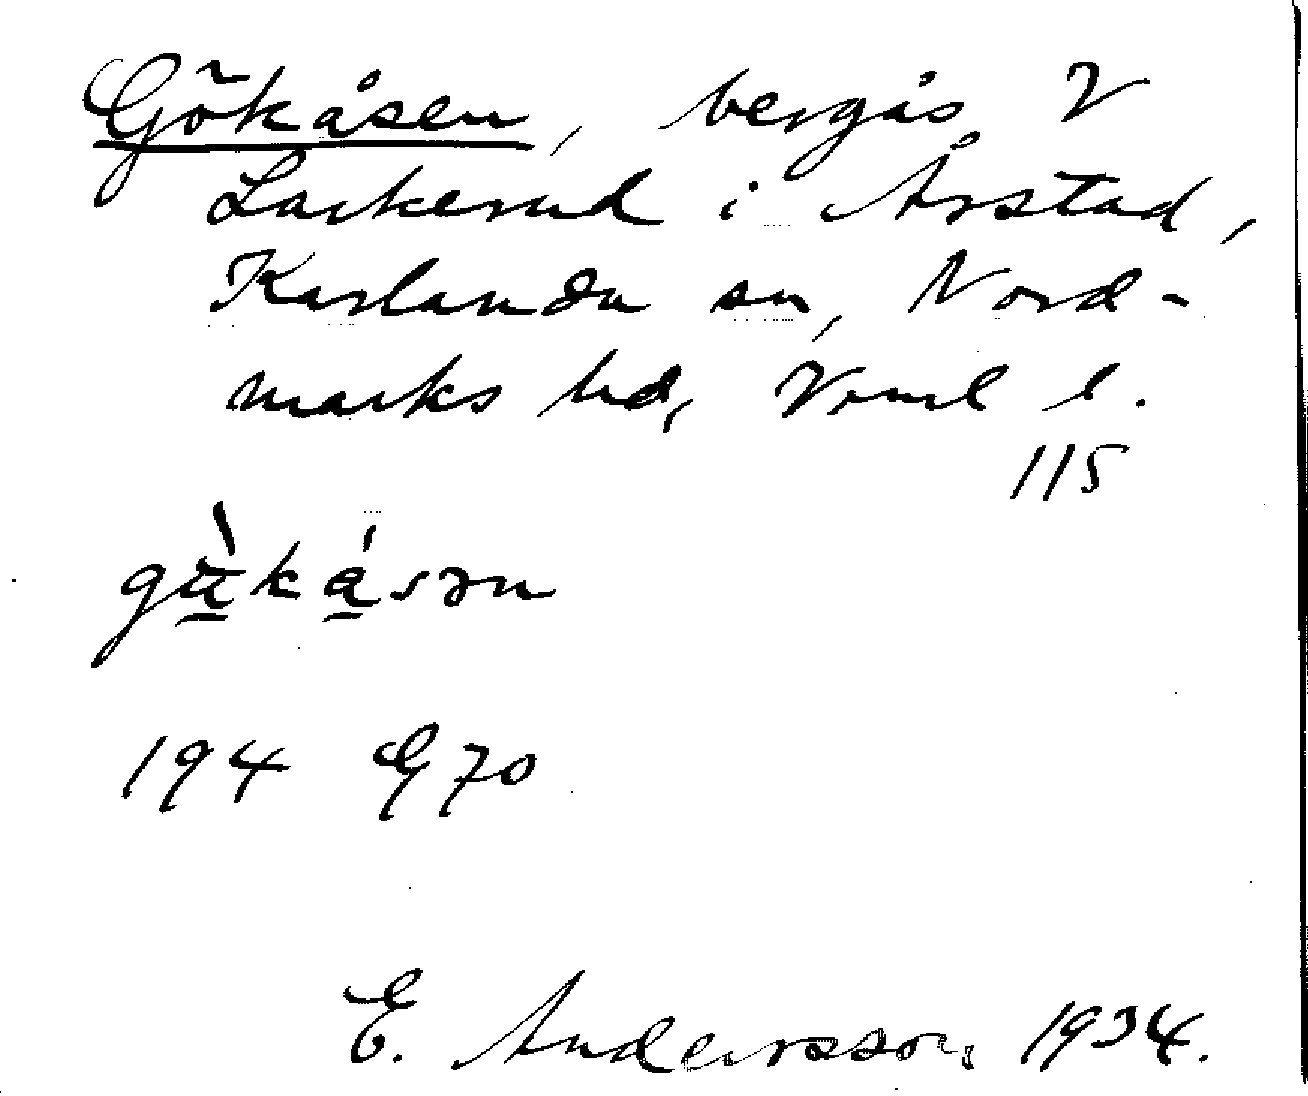 Gökåsen, bergås V
Larkerud i Årstad,
Karlanda sn, Nord-
marks hd, Vrml l.
115
gù̱ká̱sən
194 G 70
E. Andersson 1934.